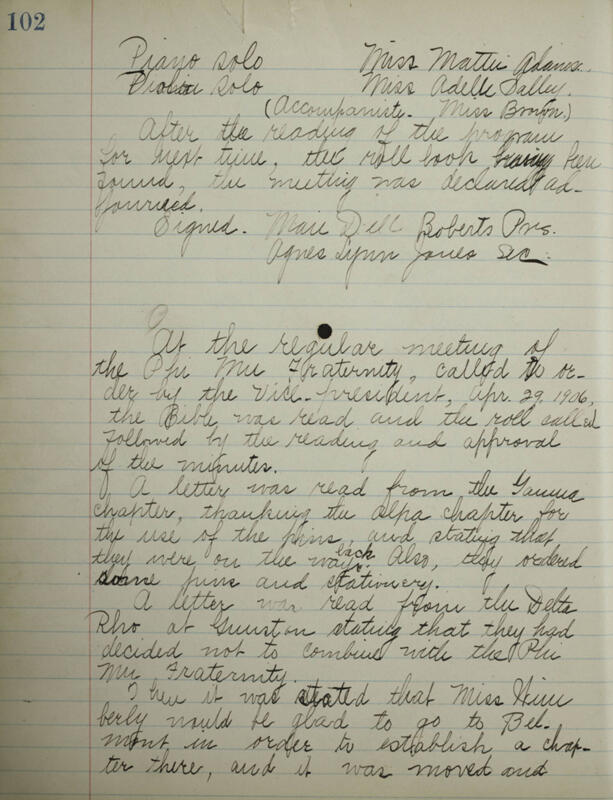 102
Piano solo Miss Mattie Adams.
Violin solo Miss Adelle Dalley.
(Accompaniste. Miss Brown.)
After the reading of the program
for next time, the roll book having been
found, the meeting was declared ad-
journed.
Signed. Maie Dell Roberts Pres.
Agnes Lynn Jones Sec.
At the regular meeting of
the Phi Mu Fraternity, called to or-
der by the Vice-president, Apr. 29, 1906,
the Bible was read and the roll called
followed by the reading and approval
of the minutes.
A letter was read from the Gamma
chapter, thanking the alpa chapter for
the use of the pins, and stating that
they were on the way back. Also, they ordered
some pins and stationery.
A letter was read from the Delta
Rho at Gunston stating that they had
decided not to combine with the Phi
Mu Fraternity.
Then it was stated that Miss Kim
berly would be glad to go to Bel-
mont in order to establish a chap-
ter there, and it was moved and